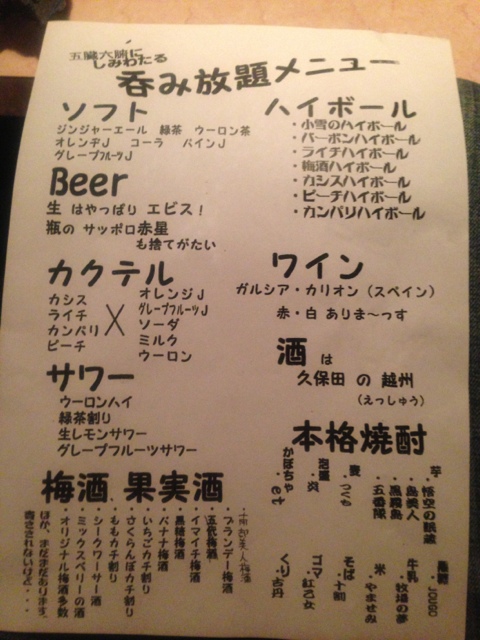 五臓六腑に
しみわたる
呑み放題メニュー
ソフト
ジンジャーエール 緑茶 ウーロン茶
オレンヂJ コーラ パインJ
グレープフルーツJ
Beer
生 はやっぱり エビス！
瓶の サッポロ赤星
も捨てがたい
カクテル
カシス
ライチ
カンパリ
ピーチ
×
オレンジJ
グレープフルーツJ
ソーダ
ミルク
ウーロン
サワー
ウーロンハイ
緑茶割り
生レモンサワー
グレープフルーツサワー
ハイボール
・小雪のハイボール
・バーボンハイボール
・ライチハイボール
・梅酒ハイボール
・カシスハイボール
・ピーチハイボール
・カンパリハイボール
ワイン
ガルシア・カリオン（スペイン）
赤・白 ありま〜っす
酒 は
久保田 の 越州
（えっしゅう）
本格焼酎
芋
・悟空の
・島美人
・黒霧島
・五番隊
麦
・つくも
泡盛
・炎
かぼちゃ
・et
・JOUGO
牛乳
・牧場の夢
米
・やませみ
そば
・十割
ゴマ
・紅乙女
くり
・古丹
梅酒、果実酒
・ブランデー梅酒
・五代梅酒
・イマイチ梅酒
・黒糖梅酒
・バナナ梅酒
・いちごカチ割り
・さくらんぼカチ割り
・ももカチ割り
・シークワーサー酒
・ミックスベリーの酒
・オリジナル梅酒多数
ほか、まだまだあります。
書ききれないけど・・・